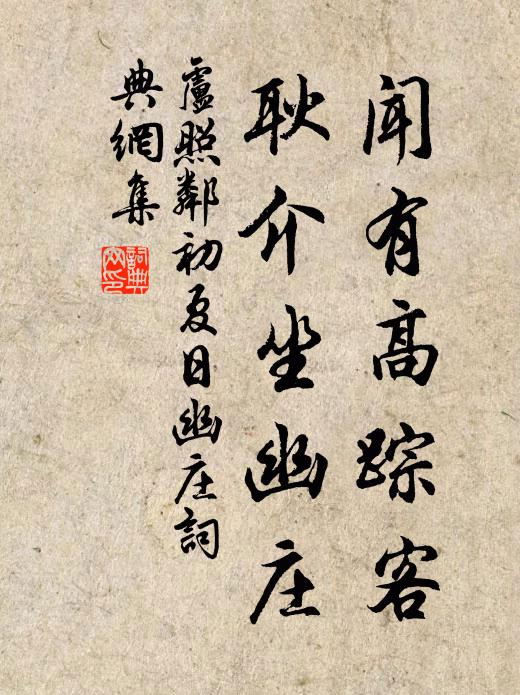 闻有高踪客
耿介坐幽庄
盧照鄰初夏日幽庄詞
典網集
詞典
网印